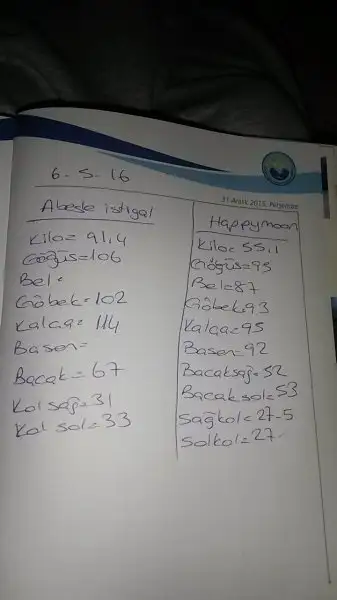 31 Aralık 2015, Perşembe
6-5-16
Abesle iştigal
Kilo= 91,4
Göğüs=106
Bel=
Göbek=102
Kalça= 114
Basen=
Bacak= 67
Kol sağ=31
Kol sol=33
Happymoon
Kilo= 55,1
Göğüs=95
Bel=87
Göbek=93
Kalça=95
Basen=92
Bacaksağ=52
Bacak sol=53
Sağkol=27-5
Solkol=27-